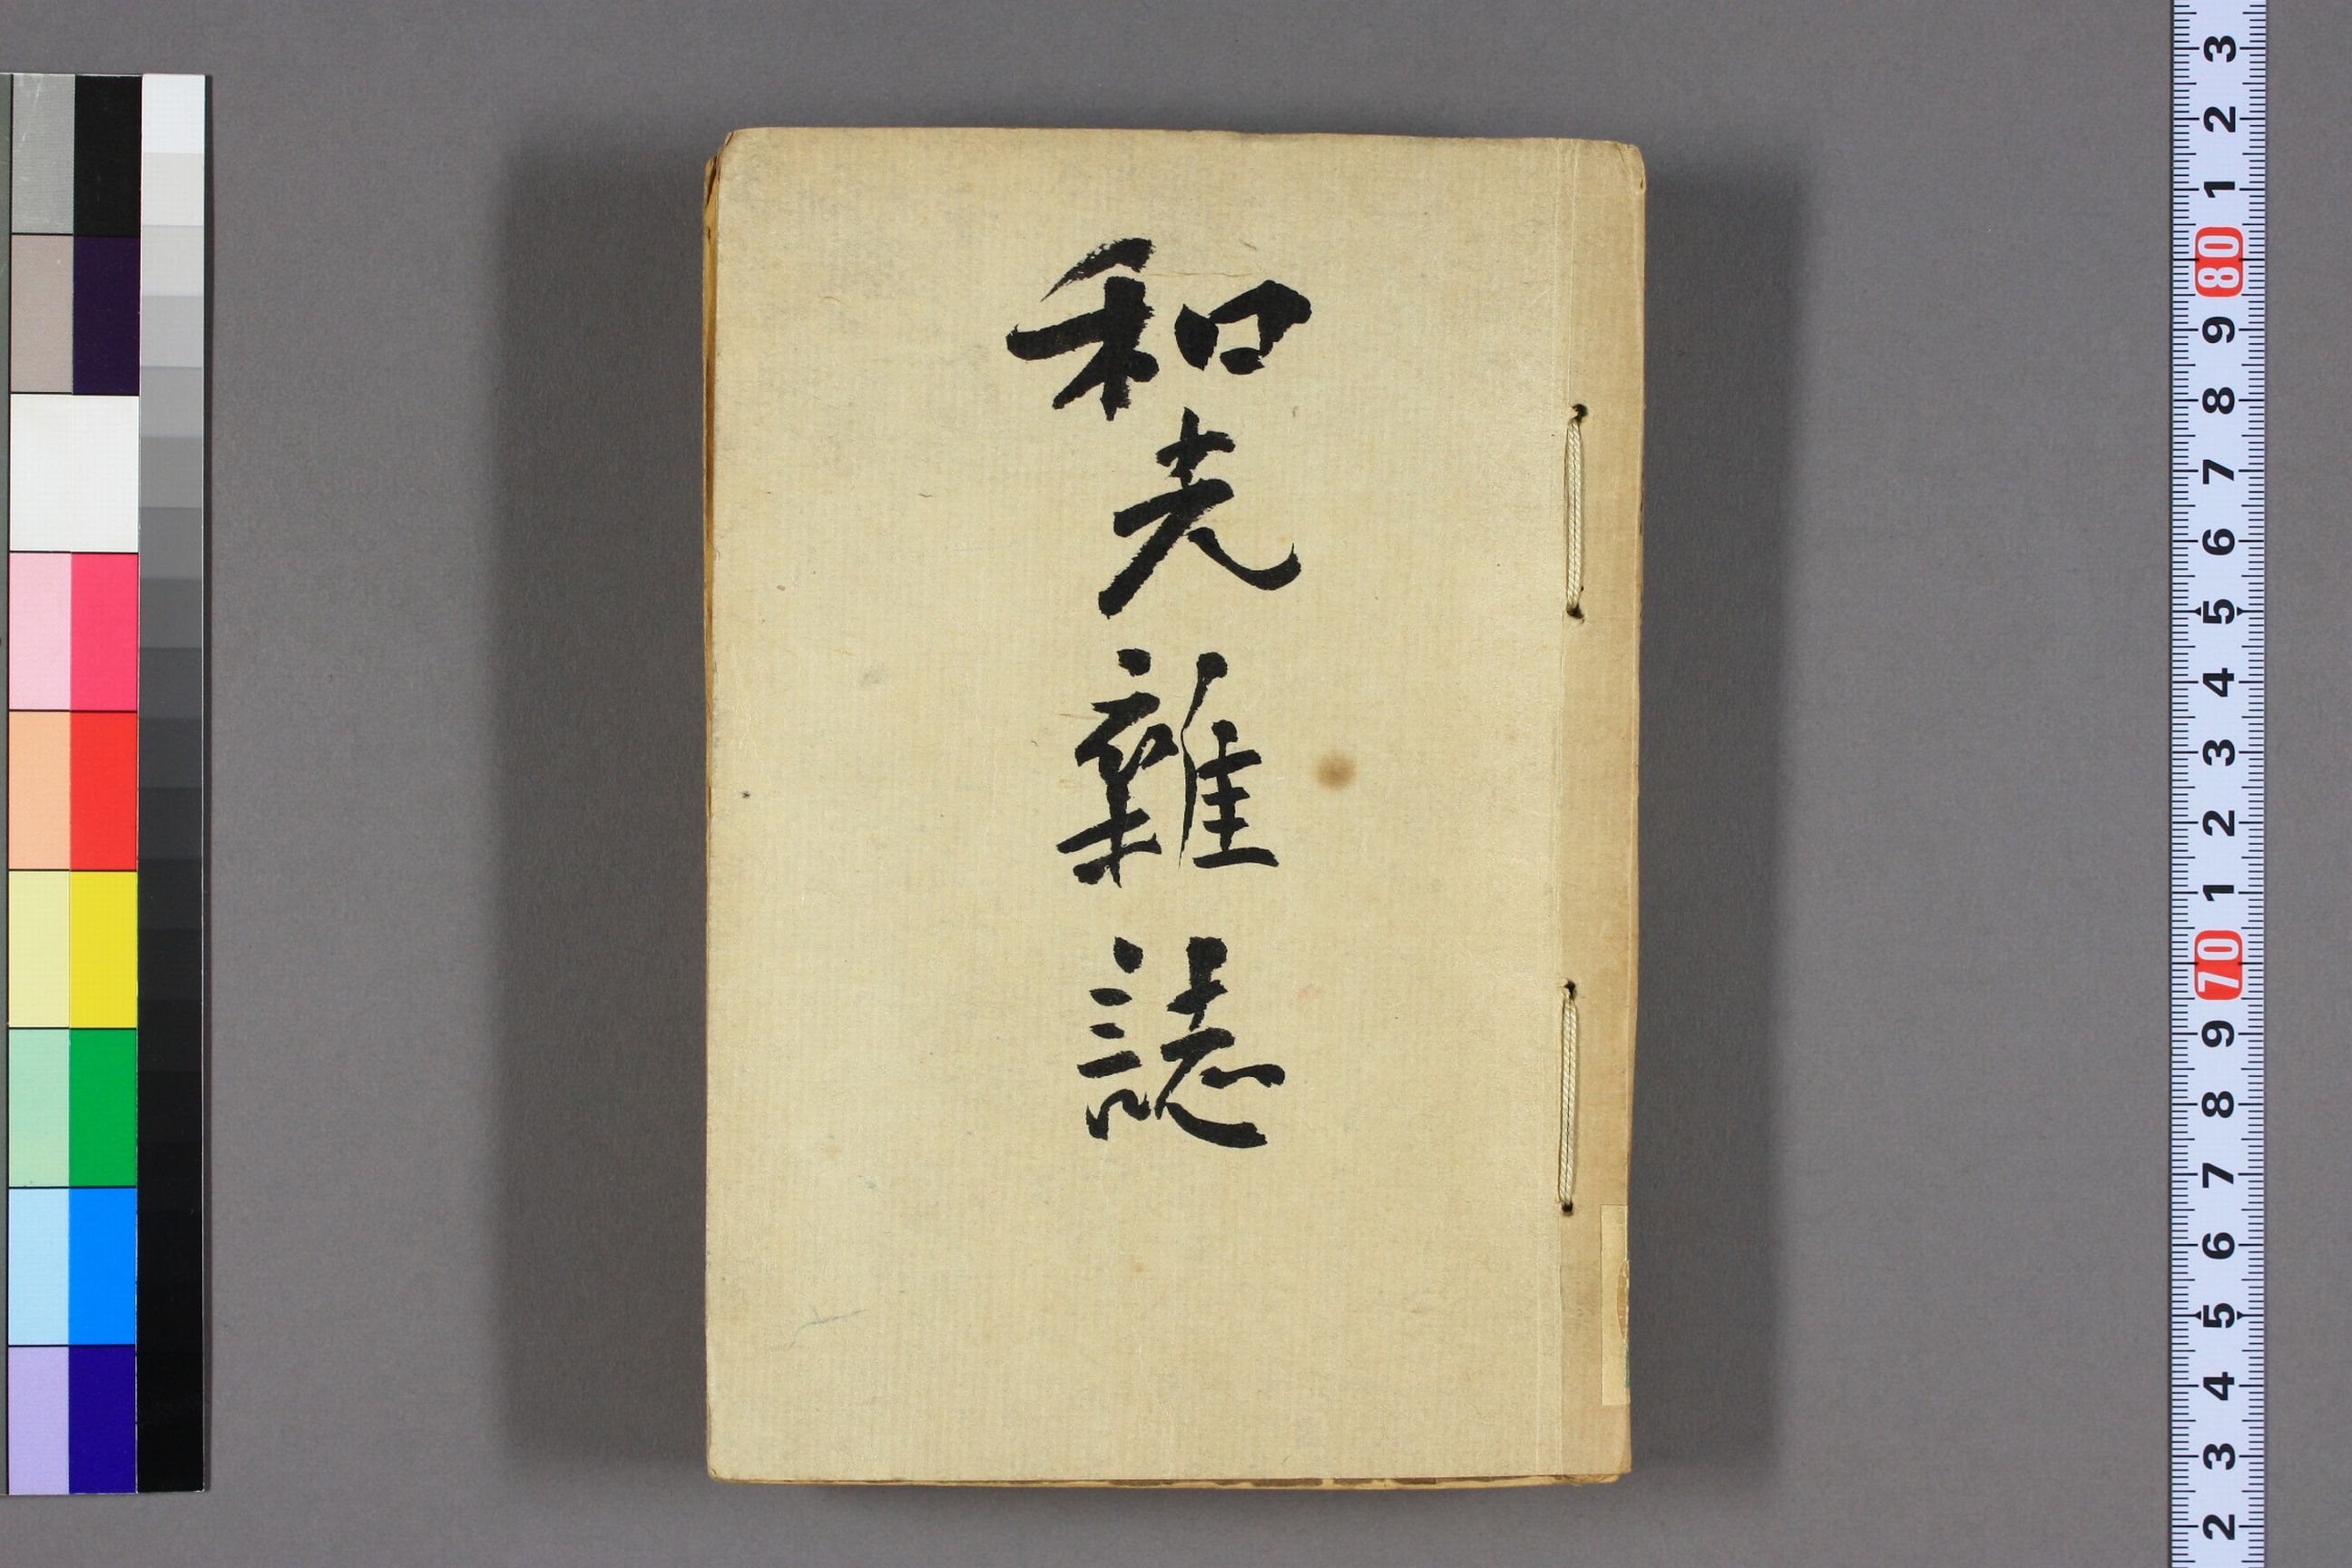 和光雜誌
3
2
1
80
9
8
7
6
5
4
3
2
1
70
9
8
7
6
5
4
3
2